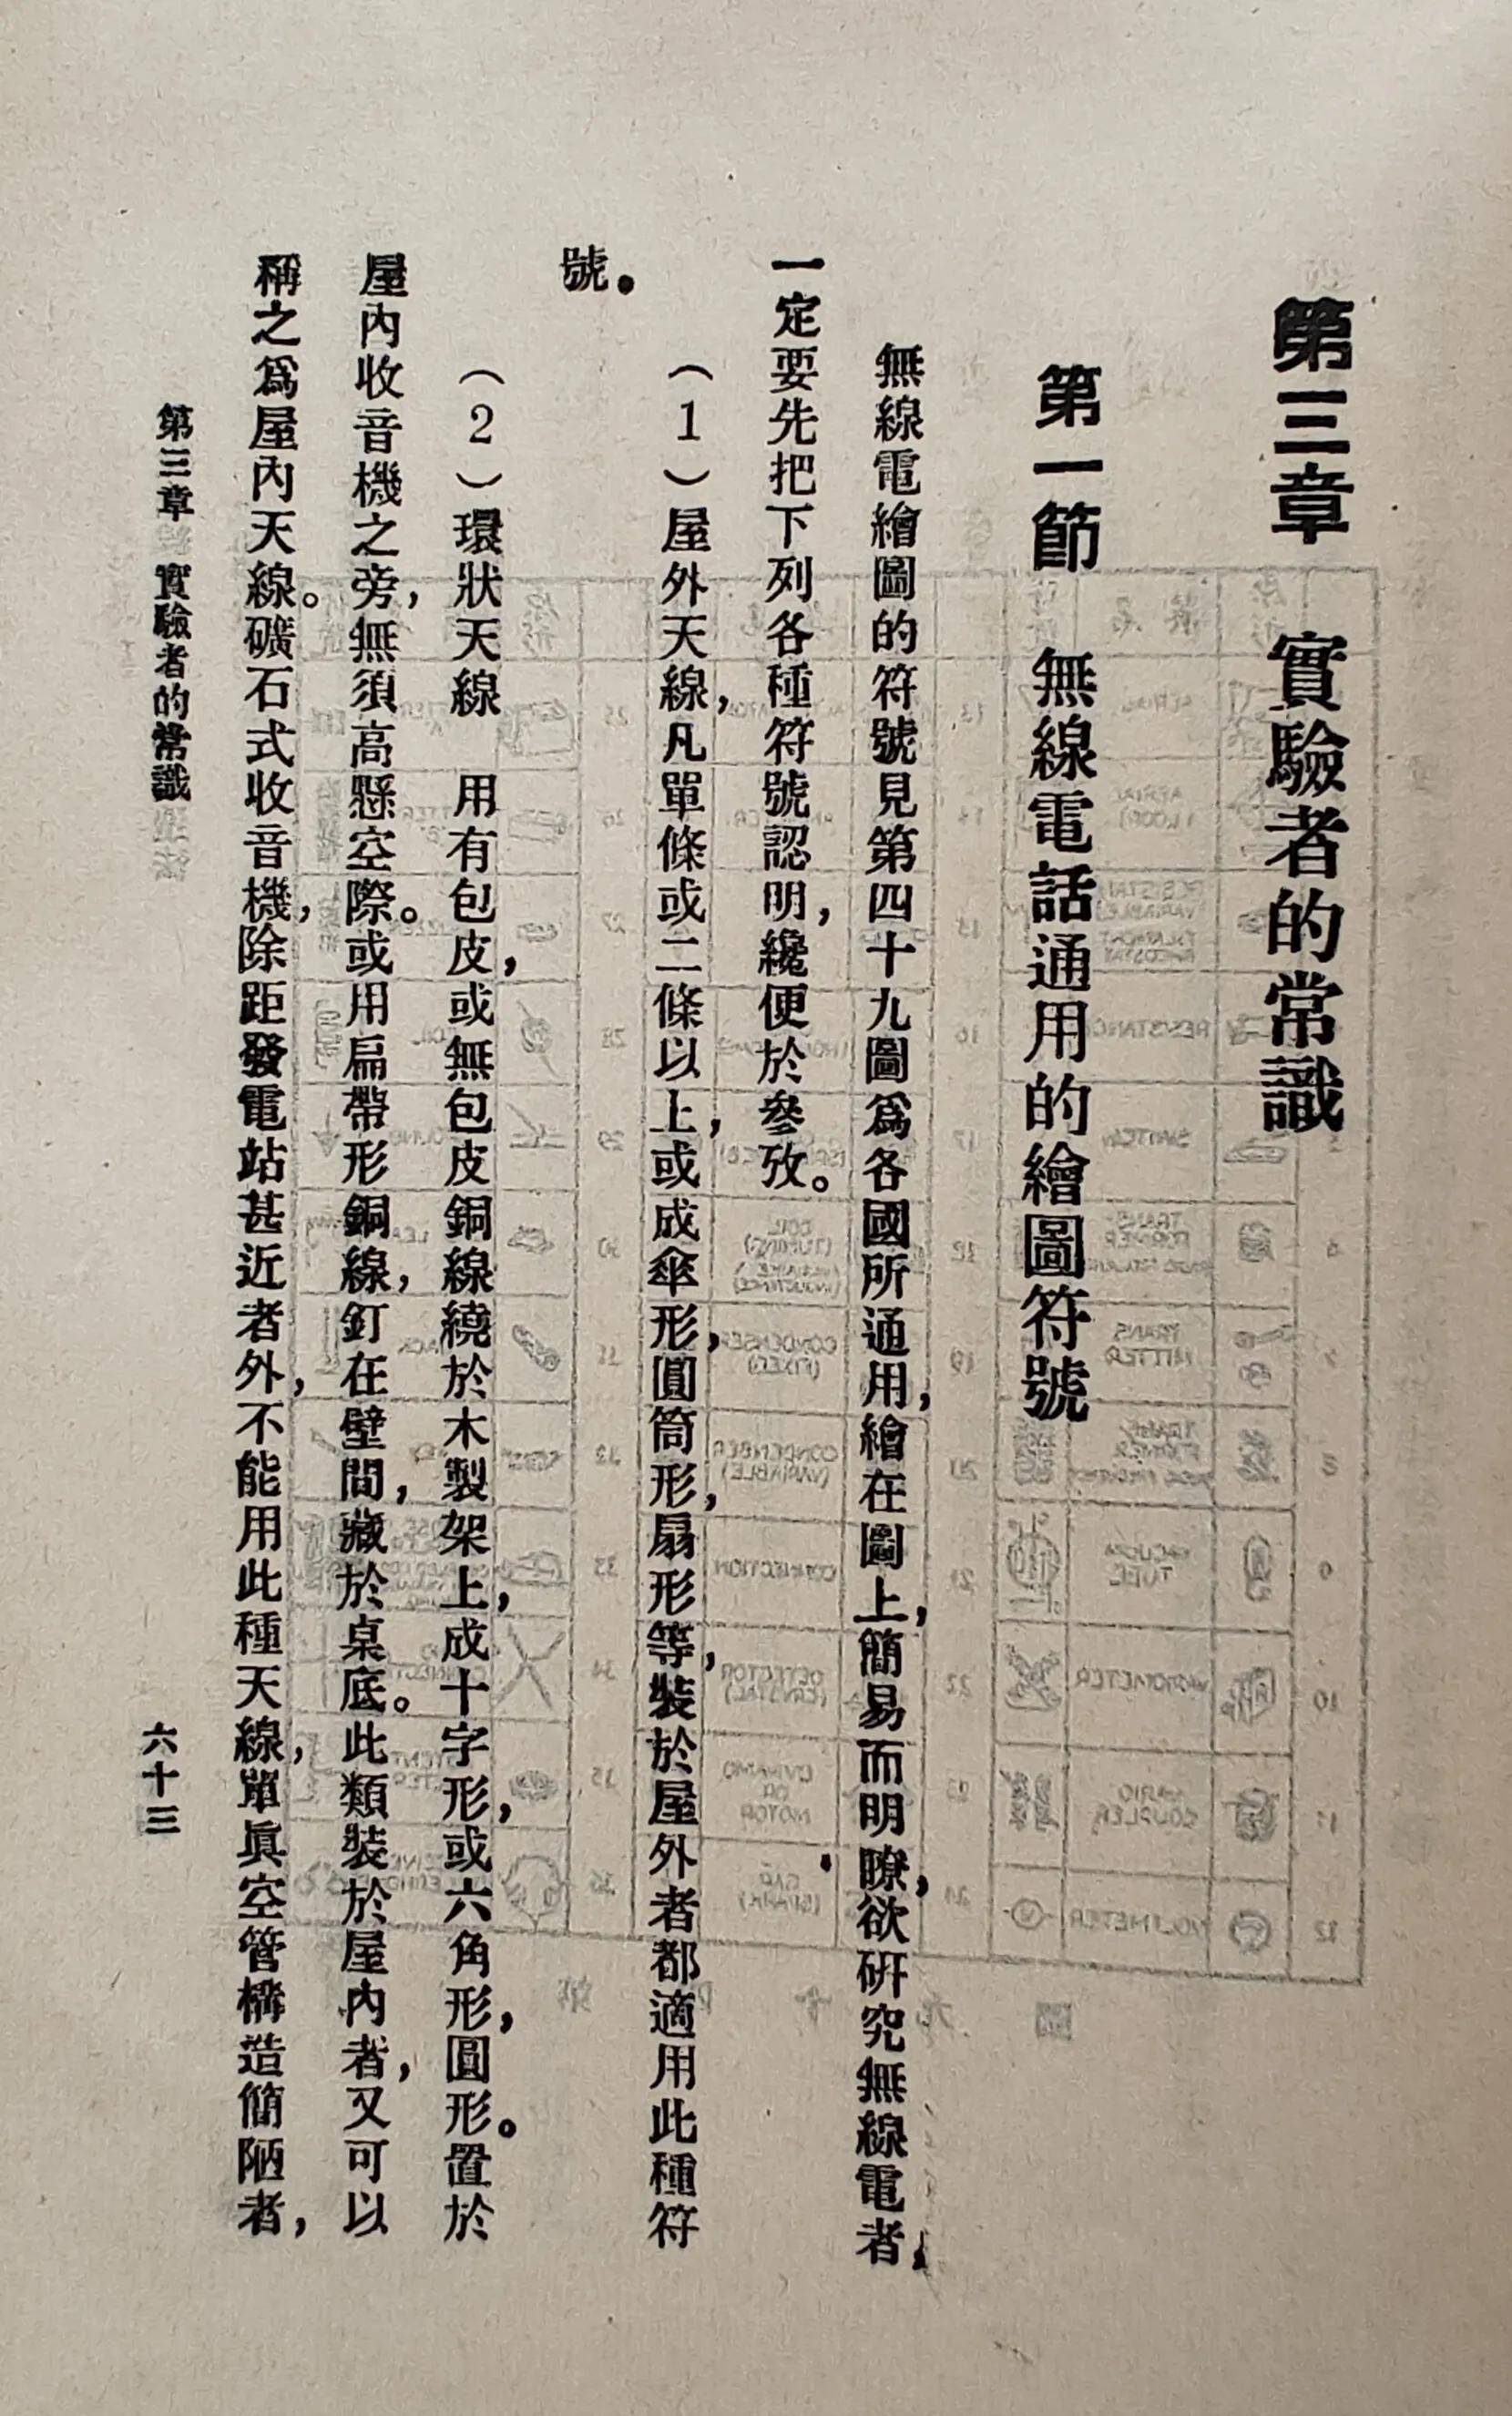 第三章　實驗者的常識
第一節　無線電話通用的繪圖符號
無線電繪圖的符號見第四十九圖爲各國所通用，繪在圖上，簡易而明瞭，欲研究無線電者，
一定要先把下列各種符號認明，纔便於參攷。
（1）屋外天線，凡單條或二條以上，或成傘形，圓筒形，扇形等，裝於屋外者都適用此種符
號。
（2）環狀天線　用有包皮，或無包皮銅線繞於木製架上，成十字形，或六角形，圓形。置於
屋內收音機之旁，無須高懸空際。或用扁帶形銅線，釘在壁間，藏於桌底。此類裝於屋內者，又可以
稱之爲屋內天線。礦石式收音機，除距發電站甚近者外，不能用此種天線，單眞空管構造簡陋者，
第三章　實驗者的常識
六十三